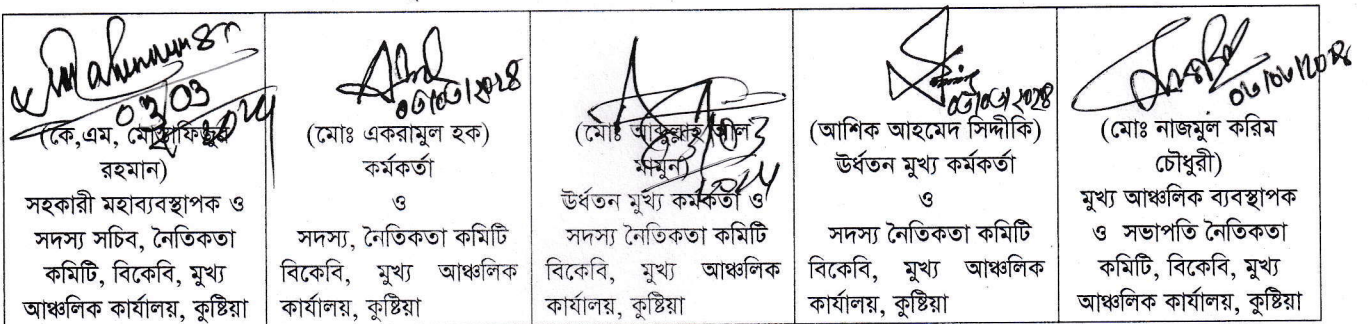 (কে,এম, মোস্তাফিজুর
রহমান)
সহকারী মহাব্যবস্থাপক ও
সদস্য সচিব, নৈতিকতা
কমিটি, বিকেবি, মুখ্য
আঞ্চলিক কার্যালয়, কুষ্টিয়া
০৩/০৩/২০২৪
(মোঃ একরামুল হক)
কর্মকর্তা
ও
সদস্য, নৈতিকতা কমিটি
বিকেবি, মুখ্য আঞ্চলিক
কার্যালয়, কুষ্টিয়া
(মোঃ আব্দুল্লাহ আল
মামুন)
ঊর্ধতন মুখ্য কর্মকর্তা ও
সদস্য নৈতিকতা কমিটি
বিকেবি, মুখ্য আঞ্চলিক
কার্যালয়, কুষ্টিয়া
০৩/০৩/২০২৪
(আশিক আহমেদ সিদ্দীকি)
ঊর্ধতন মুখ্য কর্মকর্তা
ও
সদস্য নৈতিকতা কমিটি
বিকেবি, মুখ্য আঞ্চলিক
কার্যালয়, কুষ্টিয়া
(মোঃ নাজমুল করিম
চৌধুরী)
মুখ্য আঞ্চলিক ব্যবস্থাপক
ও সভাপতি নৈতিকতা
কমিটি, বিকেবি, মুখ্য
আঞ্চলিক কার্যালয়, কুষ্টিয়া